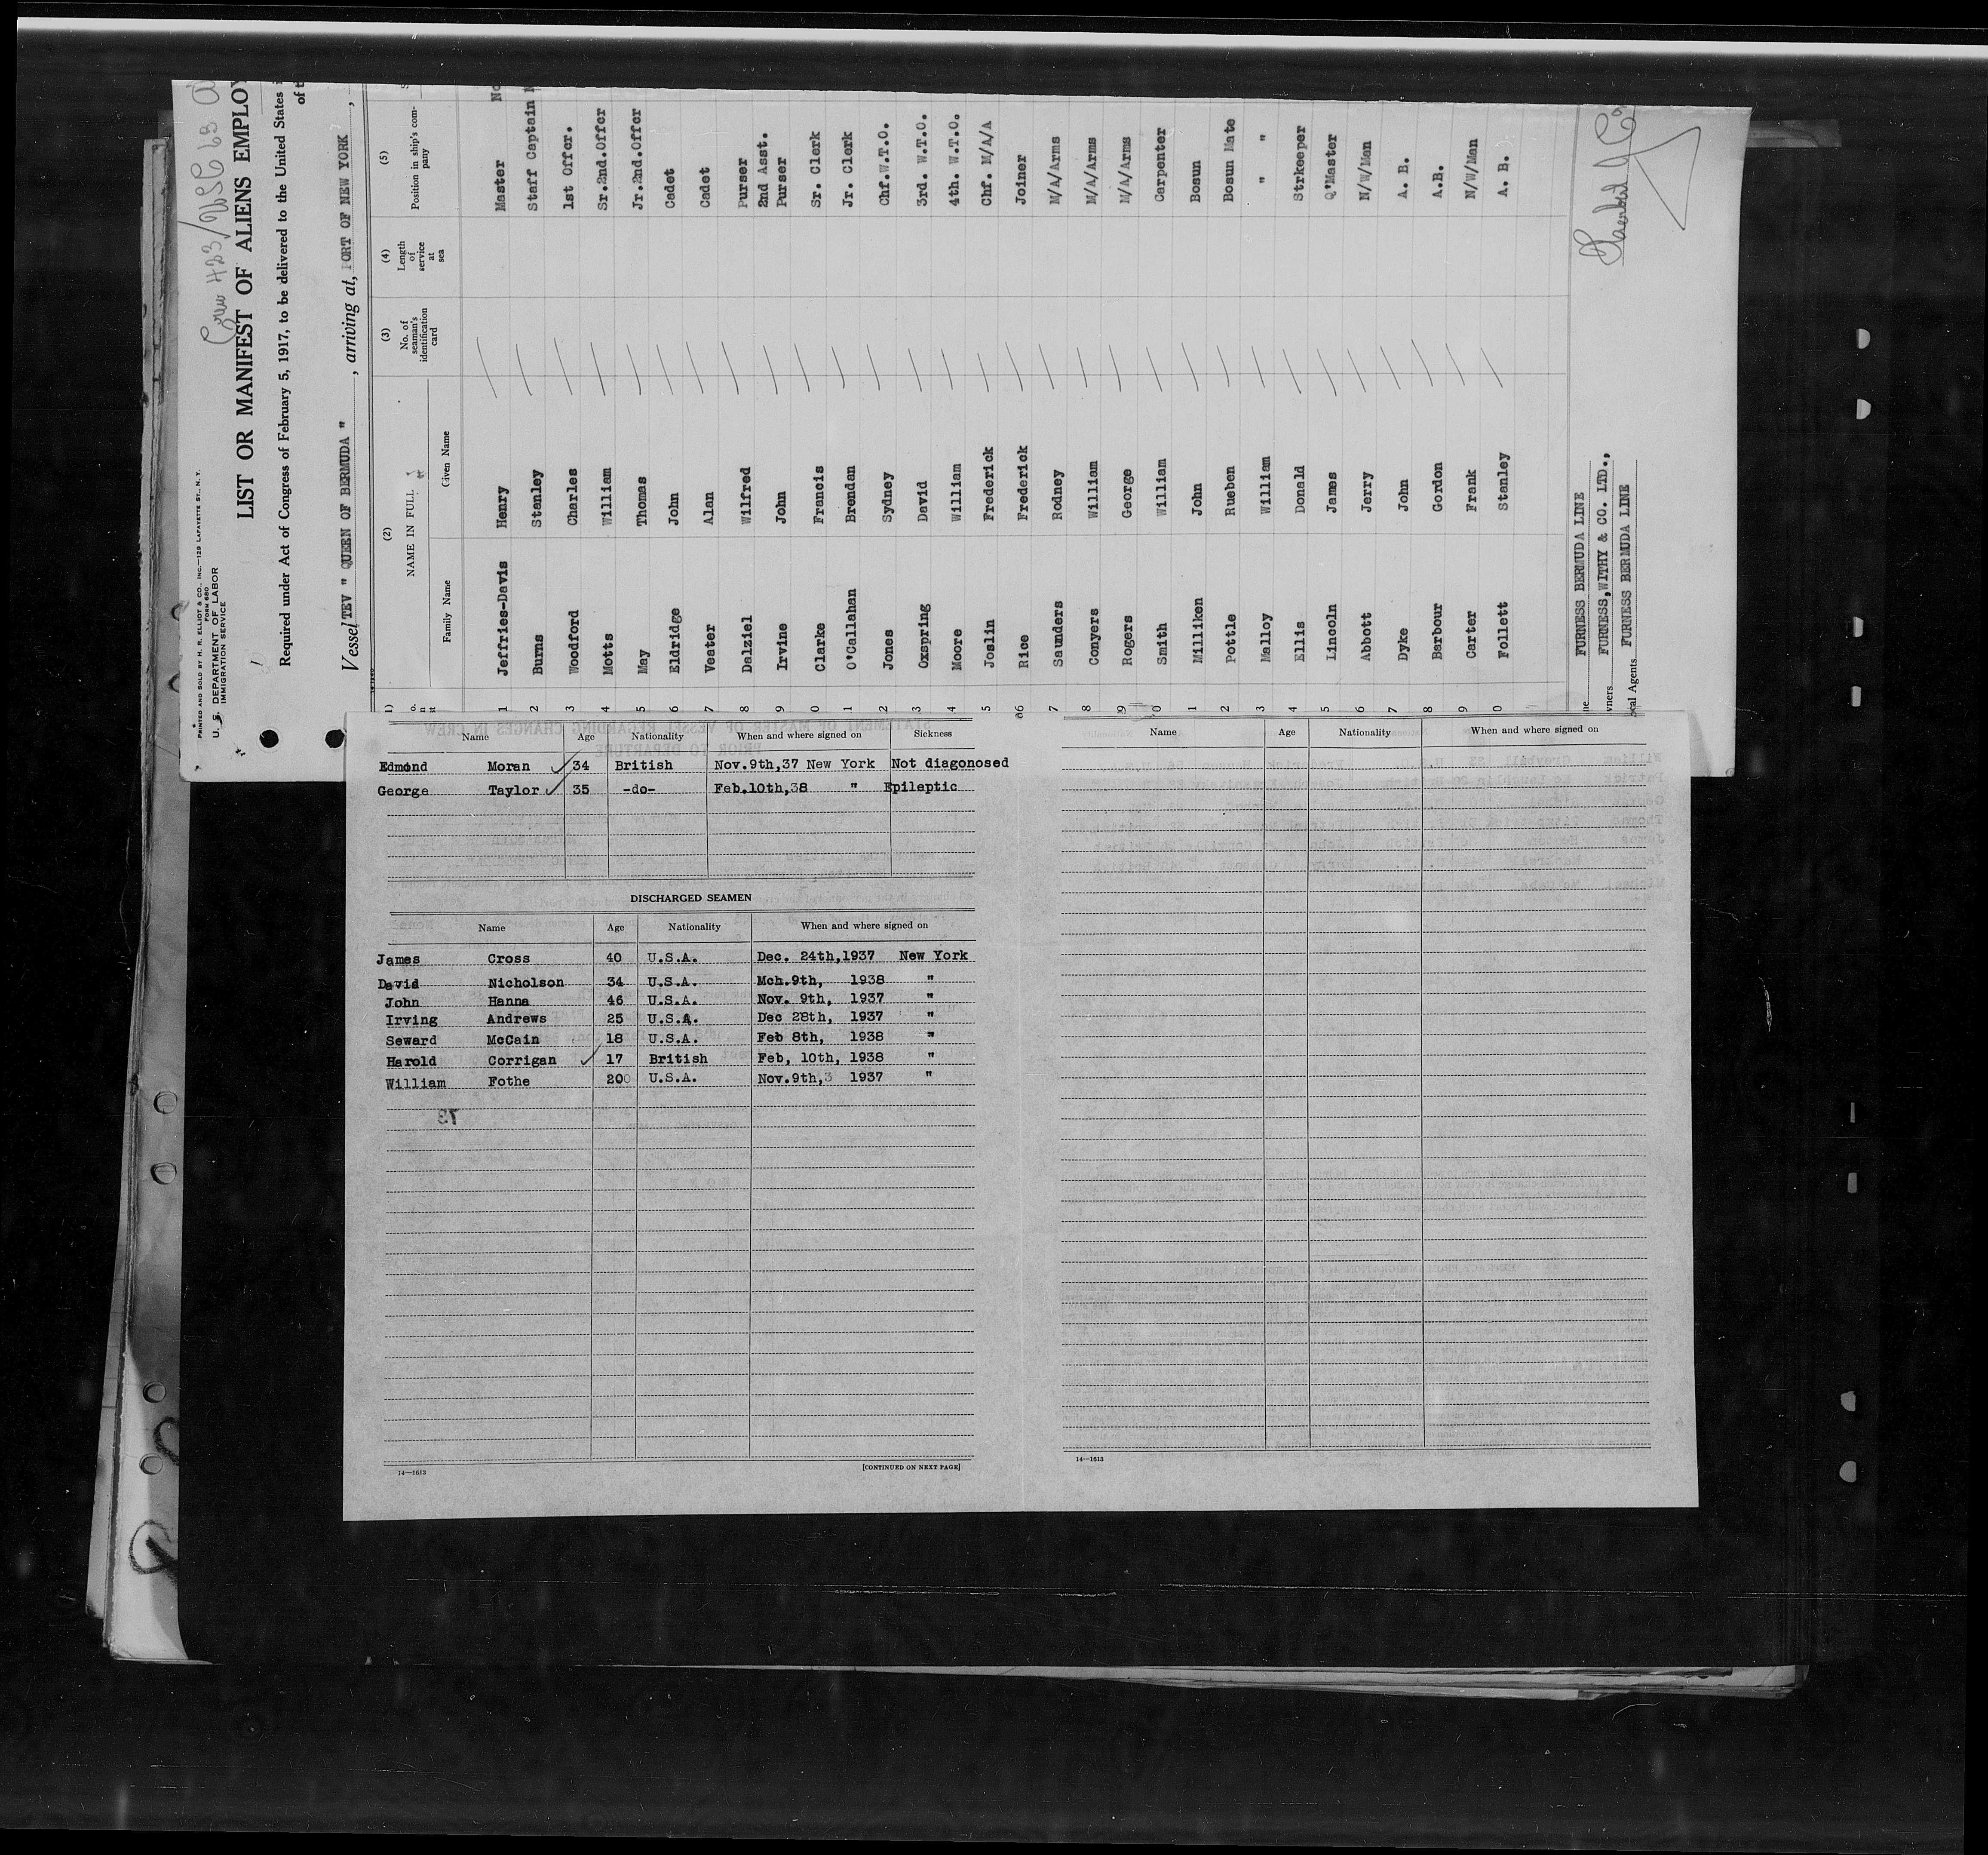 PRINTED AND SOLD BY H. R. ELLIOT & CO., INC.—129 LAFAYETTE ST., N. Y.
FORM 680
U. S. DEPARTMENT OF LABOR
IMMIGRATION SERVICE
Crew 423/USC 63
LIST OR MANIFEST OF ALIENS EMPLOY
Required under Act of Congress of February 5, 1917, to be delivered to the United States
of t
Vessel TEV " QUEEN OF BERMUDA " , arriving at, PORT OF NEW YORK ,
(2) (3) (4) (5)
NAME IN FULL No. of seaman's identification card Length of service at sea Position in ship's company
Family Name Given Name
1 Jeffries-Davis Henry Master No
2 Burns Stanley Staff Captain
3 Woodford Charles 1st Offer.
4 Motts William Sr.2nd.Offer
5 May Thomas Jr.2nd.Offer
6 Eldridge John Cadet
7 Veater Alan Cadet
8 Dalziel Wilfred Purser
9 Irvine John 2nd Asst. Purser
0 Clarke Francis Sr. Clerk
1 O'Callahan Brendan Jr. Clerk
2 Jones Sydney Chf.W.T.O.
3 Oxspring David 3rd. W.T.O.
4 Moore William 4th. W.T.O.
5 Joslin Frederick Chf. M/A/A
6 Rice Frederick Joiner
7 Saunders Rodney M/A/Arms
8 Conyers William M/A/Arms
9 Rogers George M/A/Arms
0 Smith William Carpenter
1 Milliken John Bosun
2 Pottle Rueben Bosun Mate
3 Malloy William " "
4 Ellis Donald Strkeeper
5 Lincoln James Q'Master
6 Abbott Jerry N/W/Man
7 Dyke John A. B.
8 Barbour Gordon A.B.
9 Carter Frank N/W/Man
0 Follett Stanley A. B.
ne FURNESS BERMUDA LINE
wners FURNESS,WITHY & CO. LTD.,
ocal Agents FURNESS BERMUDA LINE
Name Age Nationality When and where signed on Sickness
Edmond Moran 34 British Nov.9th,37 New York Not diagonosed
George Taylor 35 -do- Feb.10th,38 " Epileptic
DISCHARGED SEAMEN
Name Age Nationality When and where signed on
James Cross 40 U.S.A. Dec. 24th,1937 New York
David Nicholson 34 U.S.A. Mch.9th, 1938 "
John Hanna 46 U.S.A. Nov. 9th, 1937 "
Irving Andrews 25 U.S.A. Dec 28th, 1937 "
Seward McCain 18 U.S.A. Feb 8th, 1938 "
Harold Corrigan 17 British Feb, 10th, 1938 "
William Fothe 20 U.S.A. Nov.9th, 1937 "
14—1613 [CONTINUED ON NEXT PAGE]
Name Age Nationality When and where signed on
14—1613